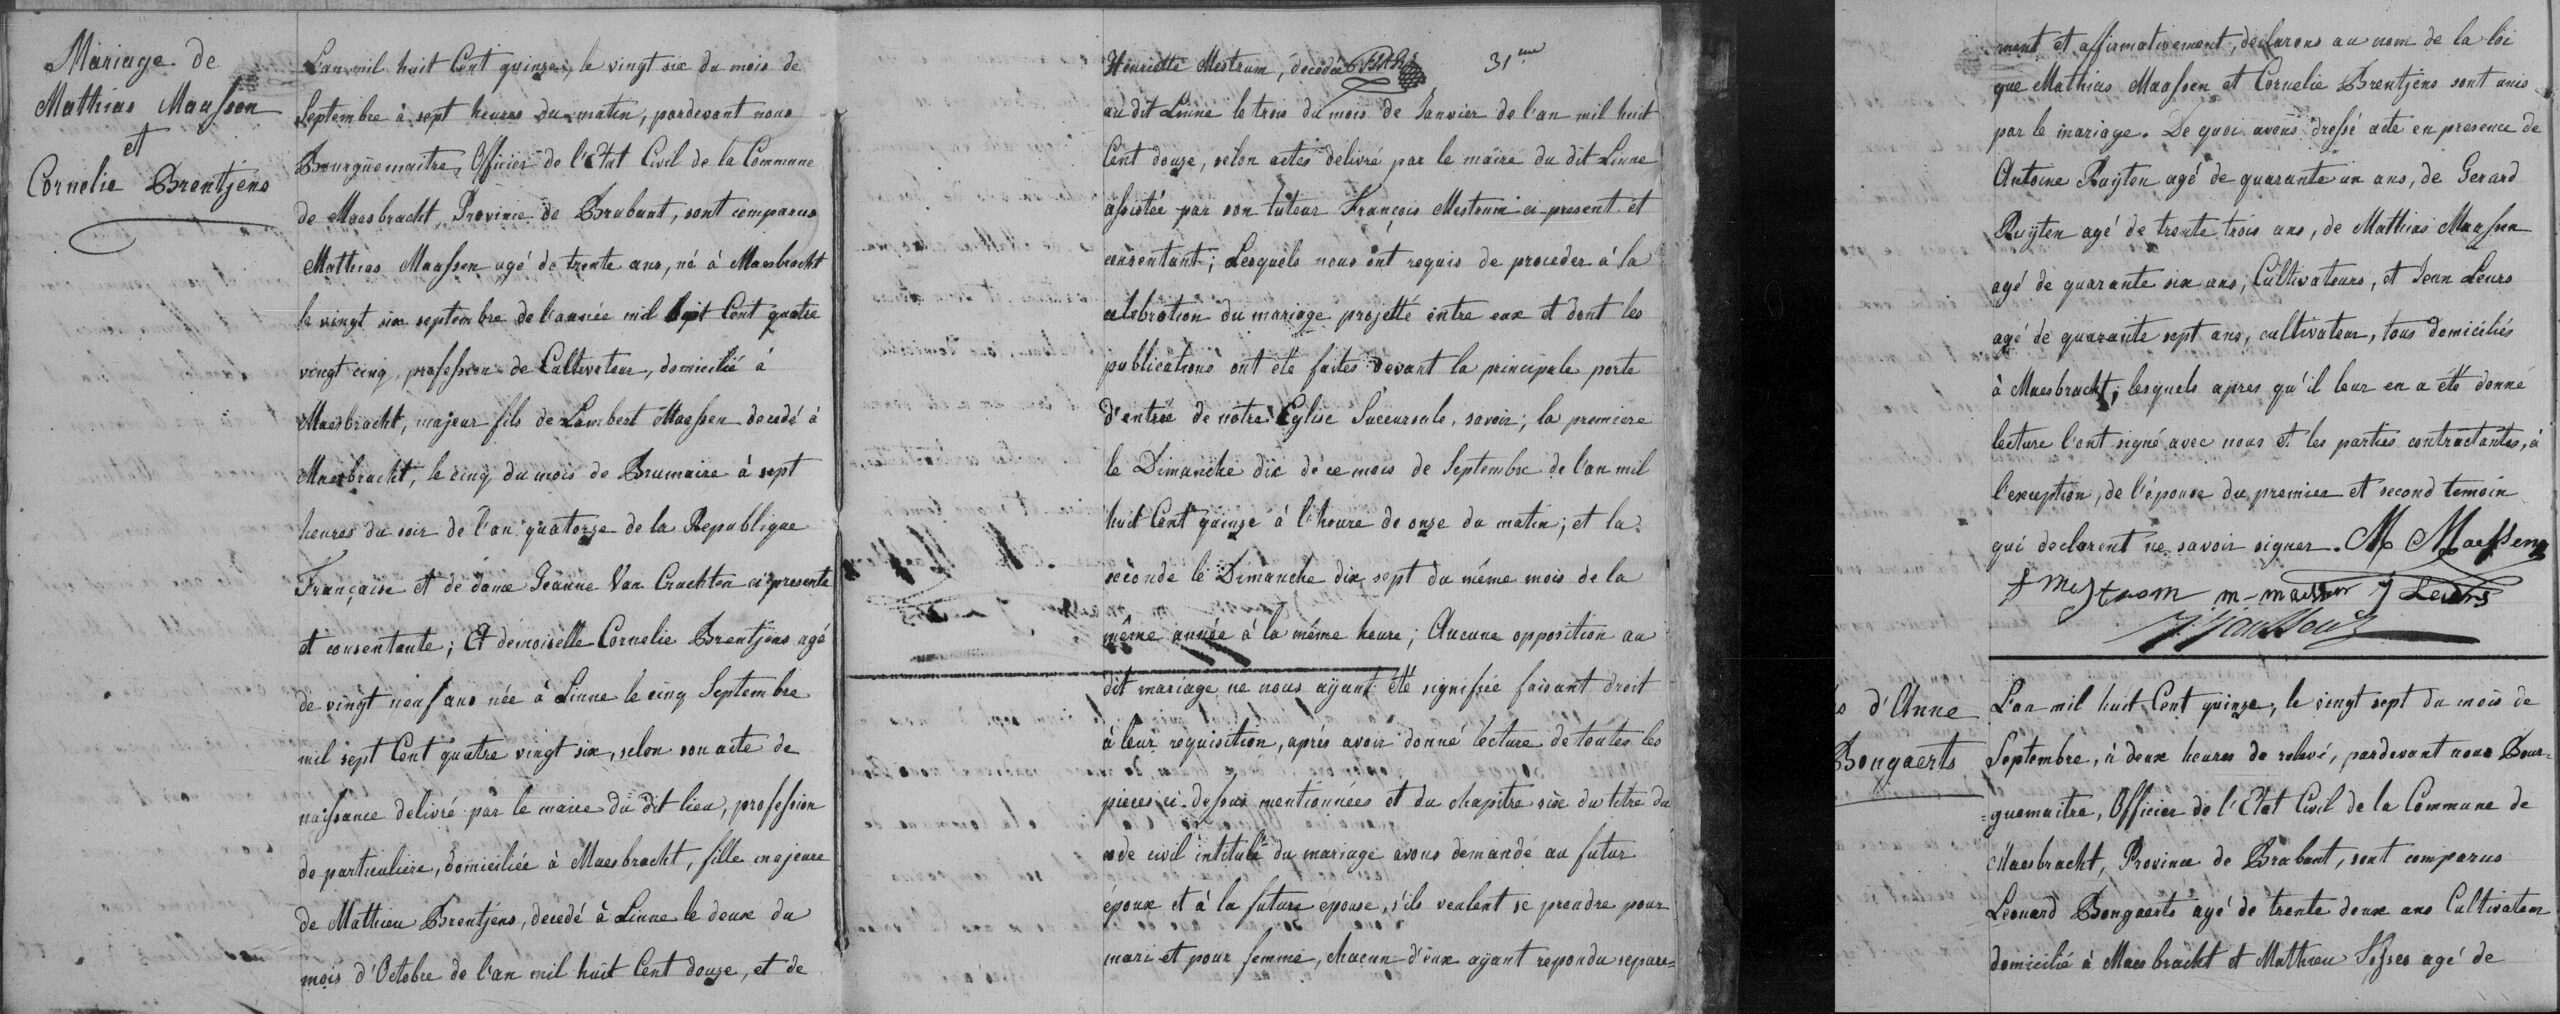 Mariage de
Mathias Maassen
et
Cornelie Brentjens
L'an mil huit Cent quinze, le vingt six du mois de
Septembre à sept heures du matin, pardevant nous
Bourguemaitre, Officier de l'Etat Civil de la Commune
de Maesbracht, Province de Brabant, sont comparus
Mathias Maassen agé de trente ans, né à Maesbracht
le vingt six septembre de l'année mil sept Cent quatre
vingt cinq, profession de Cultivateur, domicilié à
Maesbracht, majeur fils de Lambert Maessen decedé à
Maesbracht, le cinq du mois de Brumaire à sept
heures du soir de l'an quatorze de la Republique
Française et de dame Jeanne Van Crachten ci presente
et consentante; Et demoiselle Cornelie Brentjens agé
de vingt neuf ans née à Linne le cinq Septembre
mil sept Cent quatre vingt six, selon son acte de
naissance delivré par le maire du dit lieu, profession
de particuliere, domiciliée à Maesbracht, fille majeure
de Mathieu Brentjens, decedé à Linne le deux du
mois d'Octobre de l'an mil huit Cent douze, et de
Henriette Mestrum, decedée 31.me
au dit Linne le trois du mois de Janvier de l'an mil huit
Cent douze, selon actes delivré par le maire du dit Linne
assistée par son tuteur François Mestrum ci present et
consentant; Lesquels nous ont requis de proceder à la
celebration du mariage projetté entre eux et dont les
publications ont été faites devant la principale porte
d'entrée de notre Eglise Succursale, savoir; la premiere
le Dimanche dix de ce mois de Septembre de l'an mil
huit Cent quinze à l'heure de onze du matin; et la
seconde le Dimanche dix sept du même mois de la
même année à la même heure; Aucune opposition au
dit mariage ne nous aÿant été signifiée faisant droit
à leur requisition, aprés avoir donné lecture de toutes les
pieces ci-dessus mentionnées et du chapitre six du titre du
code civil intitulé du mariage avons demandé au futur
époux et à la future épouse, s'ils veulent se prendre pour
mari et pour femme, chacun d'eux aÿant repondu separe=
ment et affirmativement, declarons au nom de la loi
que Mathias Maassen et Cornelie Brentjens sont unis
par le mariage. De quoi avons dressé acte en presence de
Antoine Ruÿten agé de quarante un ans, de Gerard
Ruÿten agé de trente trois ans, de Mathias Maassen
agé de quarante six ans, Cultivateurs, et Jean Leurs
agé de quarante sept ans, cultivateur, tous domiciliés
à Maesbracht; lesquels apres qu'il leur en a été donné
lecture l'ont signé avec nous et les parties contractantes, à
l'exception, de l'épouse du premier et second temoin
qui declarent ne savoir signer. M Maessen
f mestrom m-maessen J Leurs
s d'Anne
Bongaerts
L'an mil huit Cent quinze, le vingt sept du mois de
Septembre, à deux heures de relevé, pardevant nous Bour-
=guemaitre, Officier de l'Etat Civil de la Commune de
Maesbracht, Province de Brabant, sont comparus
Léonard Bongaerts agé de trente deux ans Cultivateur
domicilié à Maesbracht et Mathieu agé de